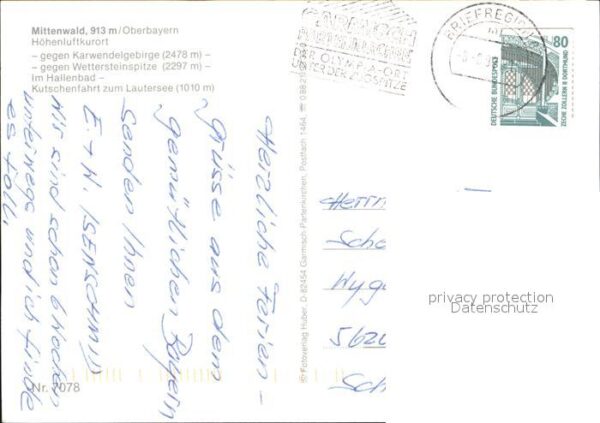 Mittenwald, 913 m/Oberbayern
Höhenluftkurort
– gegen Karwendelgebirge (2478 m) –
– gegen Wettersteinspitze (2297 m) –
Im Hallenbad –
Kutschenfahrt zum Lautersee (1010 m)
Herzliche Ferien-
Grüsse aus dem
gemütlichen Bayern
senden Ihnen
E. + H. ISENSCHMID
Wir sind schon 6 Wochen
unterwegs und ich finde
es toll.
Nr. 7078
© Fotoverlag Huber, D-82454 Garmisch-Partenkirchen, Postfach 1464,
GARMISCH
PARTENKIRCHEN
DER OLYMPIA-ORT
UNTER DER ZUGSPITZE
BRIEFREGION
80
DEUTSCHE BUNDESPOST
ZECHE ZOLLERN II DORTMUND
Herrn
Sch
Wyg
562
Sch
privacy protection
Datenschutz